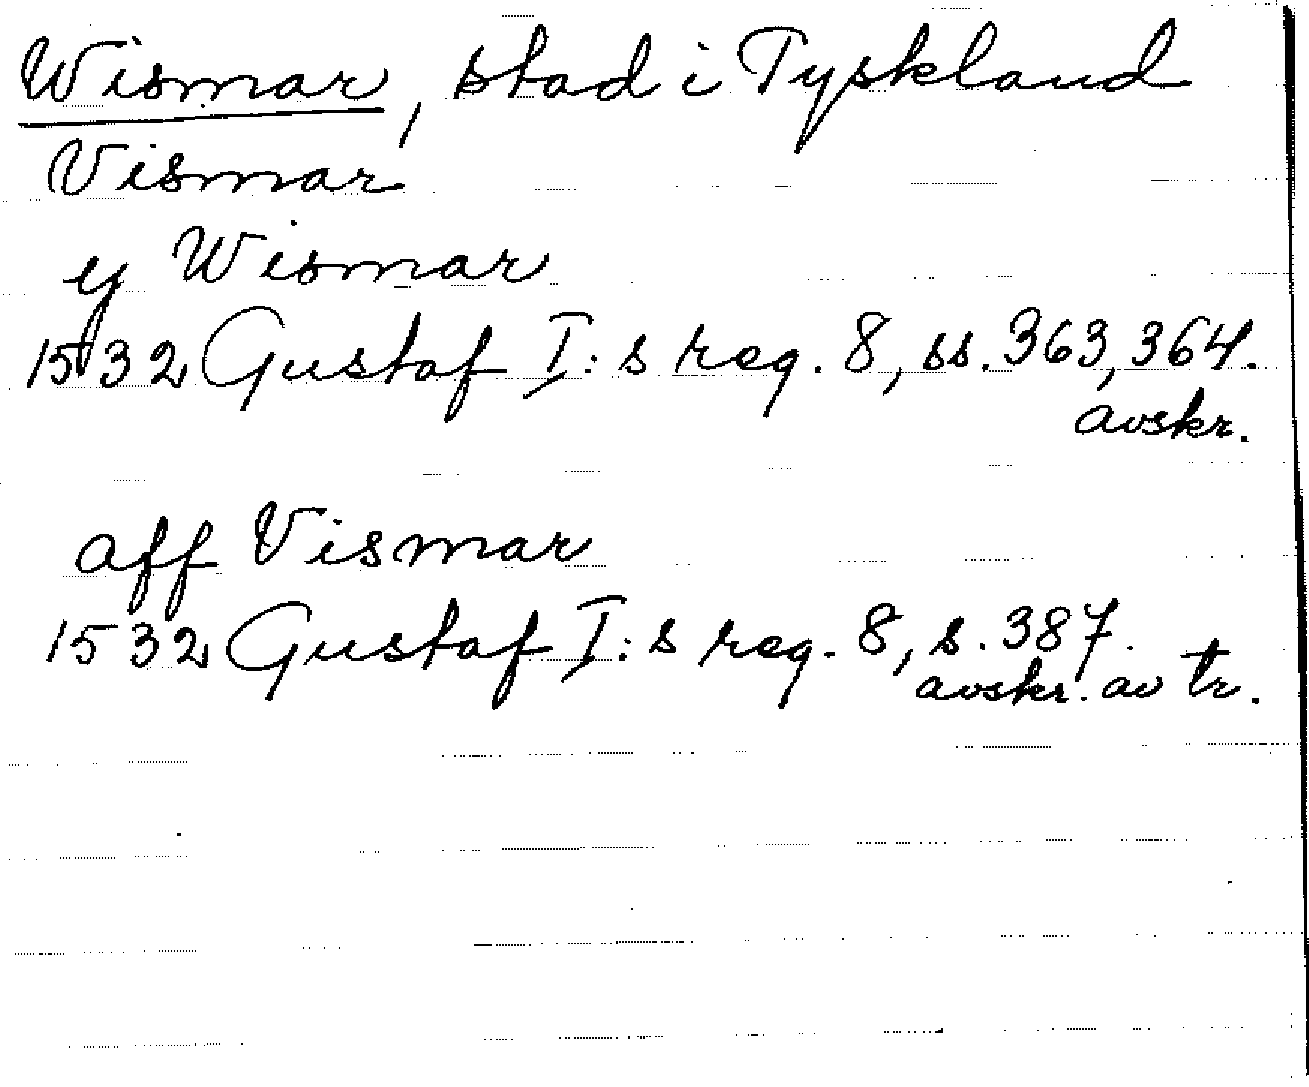 Wismar, stad i Tyskland
Vismar
y Wismar
1532 Gustaf I:s reg. 8, ss. 363, 364.
avskr.
aff Vismar
1532 Gustaf I:s reg. 8, s. 387.
avskr. av tr.